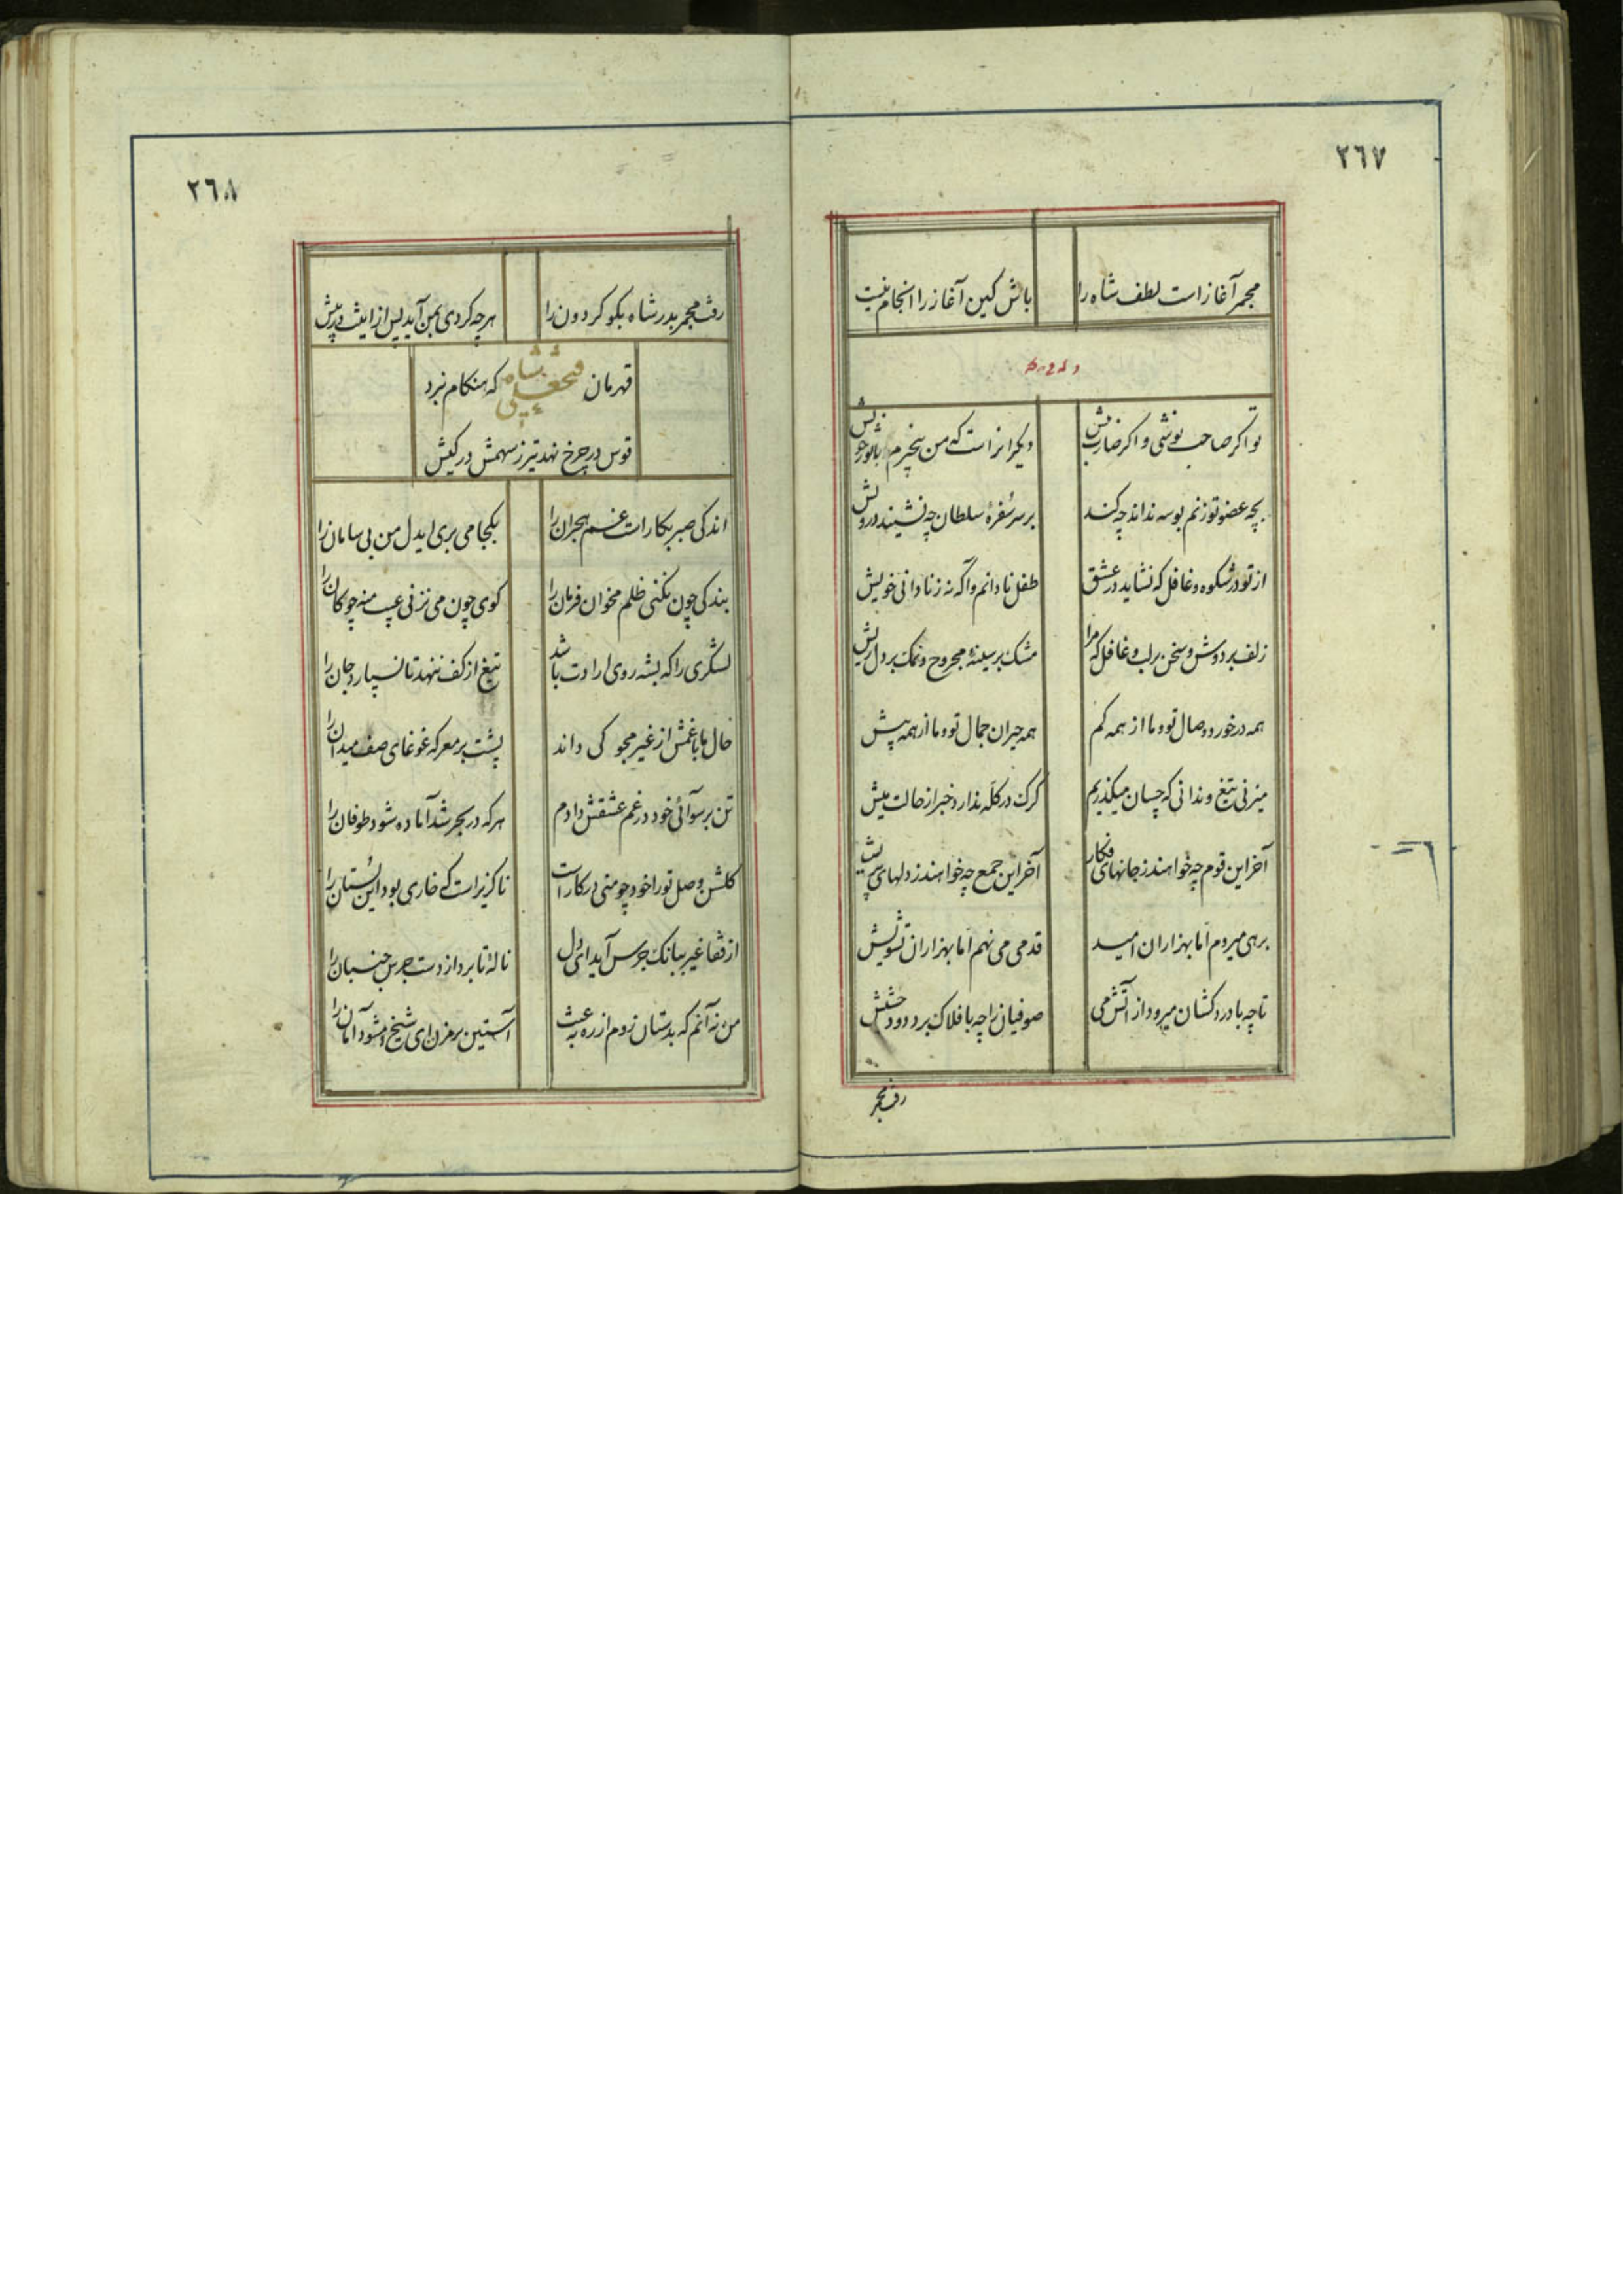 ٢٦٧
مجمر آغاز است لطف شاه را
باش کین آغاز را انجام نیست
وله
تو اگر صاحب نوشی و اگر ضارب نیش
دیگرانراست که من بیخبرم با تو ز خویش
بچه عضو تو زنم بوسه نداند چه کند
بر سر سُفرهٔ سلطان چه نشیند درویش
از تو در شکوه و غافل که نشاید در عشق
طفل نادانم و آگه نه ز نادانی خویش
زلف بر دوش و سخن بر لب و غافل که مرا
مشک بر سینهٔ مجروح و نمک بر دل ریش
همه در خورد وصال تو و ما از همه کم
همه حیران جمال تو و ما از همه پیش
میزنی تیغ و ندانی که چسان میگذریم
کرک در کله ندارد خبر از حالت میش
آخر این قوم چه خواهند ز جانهای فکار
آخر این جمع چه خواهند ز دلهای پریش
برهی میروم اما بهزاران امید
قدمی می نهم اما بهزاران تشویش
تا چه با دردکشان میرود از آتش می
صوفیانرا چه بافلاک برد دود حشیش
رفت مجمر
٢٦٨
رفت مجمر بدر شاه بکو کردون را
هرچه کردی بمن آید پس ازاینت در پیش
قهرمان فتحعلی شاه که هنکام نبرد
قوس در چرخ نهد تیر ز سهمش در کیش
اندکی صبر بکار است غم هجران را
بکجا می بری ایدل من بی سامان را
بندکی چون نکنی ظلم مخوان فرمان را
کوی چون می نزنی عیب منه چوکان را
لشکری را که بشه روی ارادت باشد
تیغ از کف ننهد تا نسپارد جان را
حال ما با غمش از غیر مجو کی داند
پشت بر معرکه غوغای صف میدان را
تن برسوائی خود در غم عشقش دادم
هر که در بحر شد آماده شود طوفان را
کلشن وصل تو را خود چو منی در کار است
ناکزیر است که خاری بود این بُستان را
از قفا غیر ببانک جرس آید ای دل
ناله تا بر دارد دست جرس جنبان را
من نه آنم که بدستان روم از ره بعبث
آستین بر مزن ای شیخ و مشو دامان را